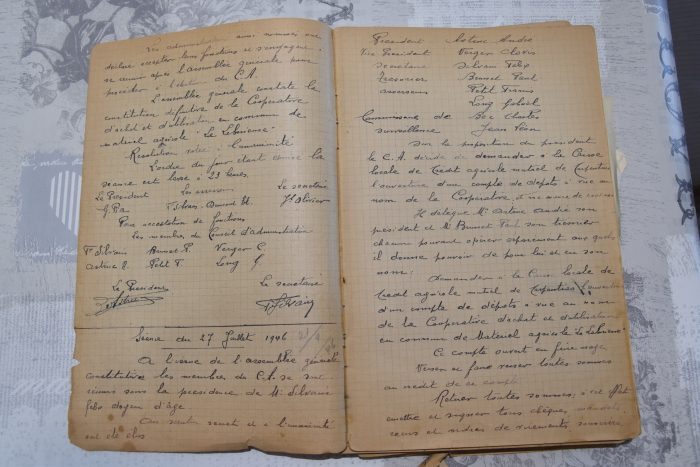 Les administrateurs ainsi nommés ont
déclaré accepter leurs fonctions et s'engagent
se réunir après l'assemblée générale pour
procéder à l'élection du C.A.
L'assemblée générale constate la
constitution définitive de la Coopérative
d'achat et d'utilisation en commun de
matériel agricole "La Laborieuse"
Résolution votée à l'unanimité
L'ordre du jour étant épuisé la
séance est levée à 23 heures.
Le President Les Le secretaire
G. Silvain Brunet H. Olivier
Pour acceptation de fonctions
Les membres du Conseil d'administration
F Silvain Brunet P. Verger C
Petit F. Long G
Le President Le secretaire
Seance du 27 Juillet 1946
A l'issue de l'assemblée générale
constitutive les membres du C.A. se sont
réunis sous la presidence de Mr Silvain
felix doyen d'âge.
Au scrutin secret et à l'unanimité
ont été élus
President André
Vice President Verger Clovis
Secretaire Silvain Felix
Tresorier Brunet Paul
assesseurs Petit Francis
Long Gabriel
Commissaires de Bec Charles
surveillance Jean Léon
Sur la proposition du président
le C.A. décide de demander à la Caisse
locale de Credit agricole mutuel de Carpentras
l'ouverture d'un compte de dépots à vue au
nom de la Cooperative,
Il délègue Mr André son
président et Mr Brunet Paul son tresorier
chacun pouvant opérer séparément aux quels
il donne pouvoir de pour lui et en son
nom:
Demander à la Caisse locale de
Credit agricole mutuel de Carpentras l'ouverture
d'un compte de dépots à vue au nom
de la Coopérative d'achat et d'utilisation
en commun de Materiel agricole La Laborieuse.
Ce compte ouvert en faire usage
Verser et faire verser toutes sommes
au credit de ce compte
Retirer toutes sommes, à cet effet
emettre et signer tous chèques, mandats,
recus et ordres de virements,